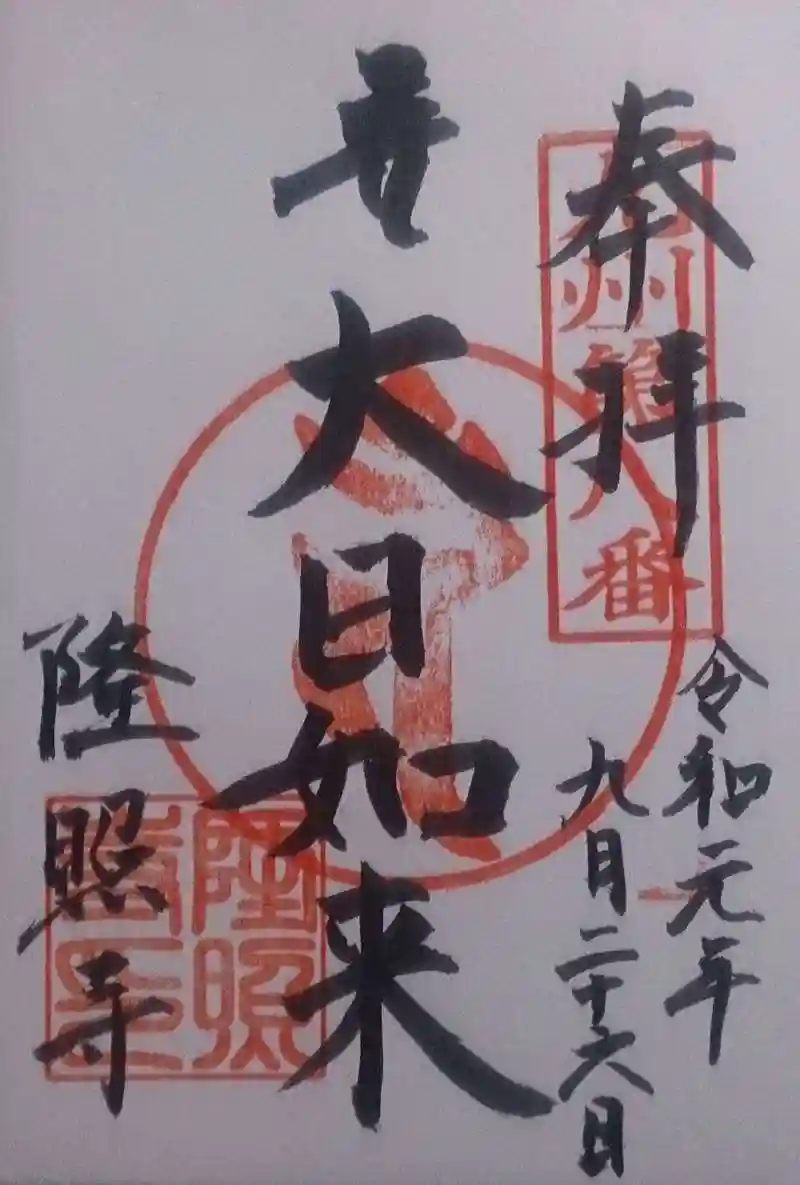 奉拝
令和元年
九月二十六日
大日如来
隆照寺
九州第八番
隆照